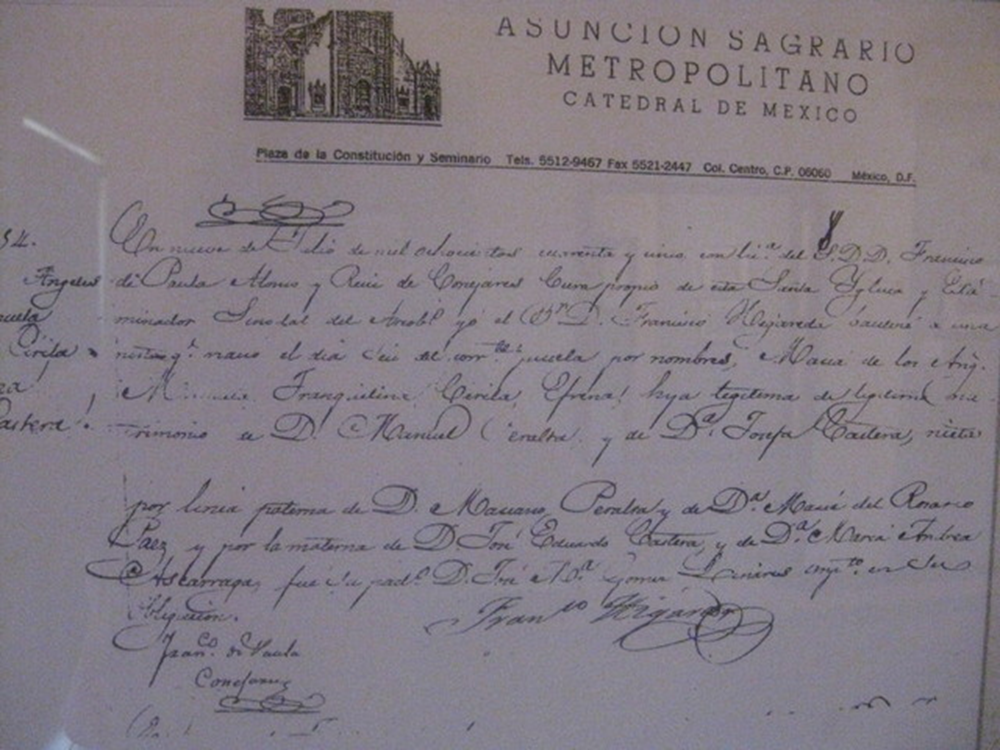 ASUNCION SAGRARIO
METROPOLITANO
CATEDRAL DE MEXICO
Plaza de la Constitución y Seminario Tels. 5512-9467 Fax 5521-2447 Col. Centro, C.P. 06060 México, D.F.
54.
Angeles
Cirila
Castera!
En nueve de Julio de mil ochocientos cuarenta y cinco con lic.ª del S.D.D. Francisco
de Paula Alonso y Ruiz de Conejares Cura propio de esta Santa Yglecia y Exâ-
minador Sinodal del Arzob.º yo el B.r D. Francisco Higareda bautisé a una
niña q.e nacio el dia seis del corr.te puesela por nombres, Maria de los Ang.
Manuela Tranquilina Cirila Efrena! hija legitima de legitimo ma-
trimonio de D. Manuel Peralta y de D.ª Josefa Castera, nieta
por linia paterna de D. Mariano Peralta y de D.ª Maria del Rosario
Paez, y por la materna de D. José Eduardo Castera, y de D.ª Maria Andrea
Ascarraga, fue su pad.º D. José M.ª Gomez Linares en su
obligacion.
Fran.co Higareda
Fran.co de Paula
Conejares